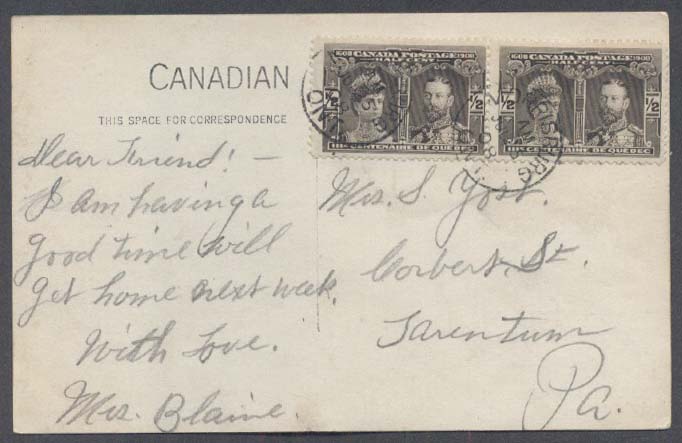 CANADIAN
THIS SPACE FOR CORRESPONDENCE
1608 CANADA POSTAGE 1908
HALF CENT
1/2 1/2
IIIE CENTENAIRE DE QUÉBEC
1608 CANADA POSTAGE 1908
HALF CENT
1/2 1/2
IIIE CENTENAIRE DE QUÉBEC
Dear Friend! —
I am having a
good time will
get home next week.
With Love.
Mrs. Blaine.
Mrs. S. Yost.
Corbert St.
Tarentum
Pa.